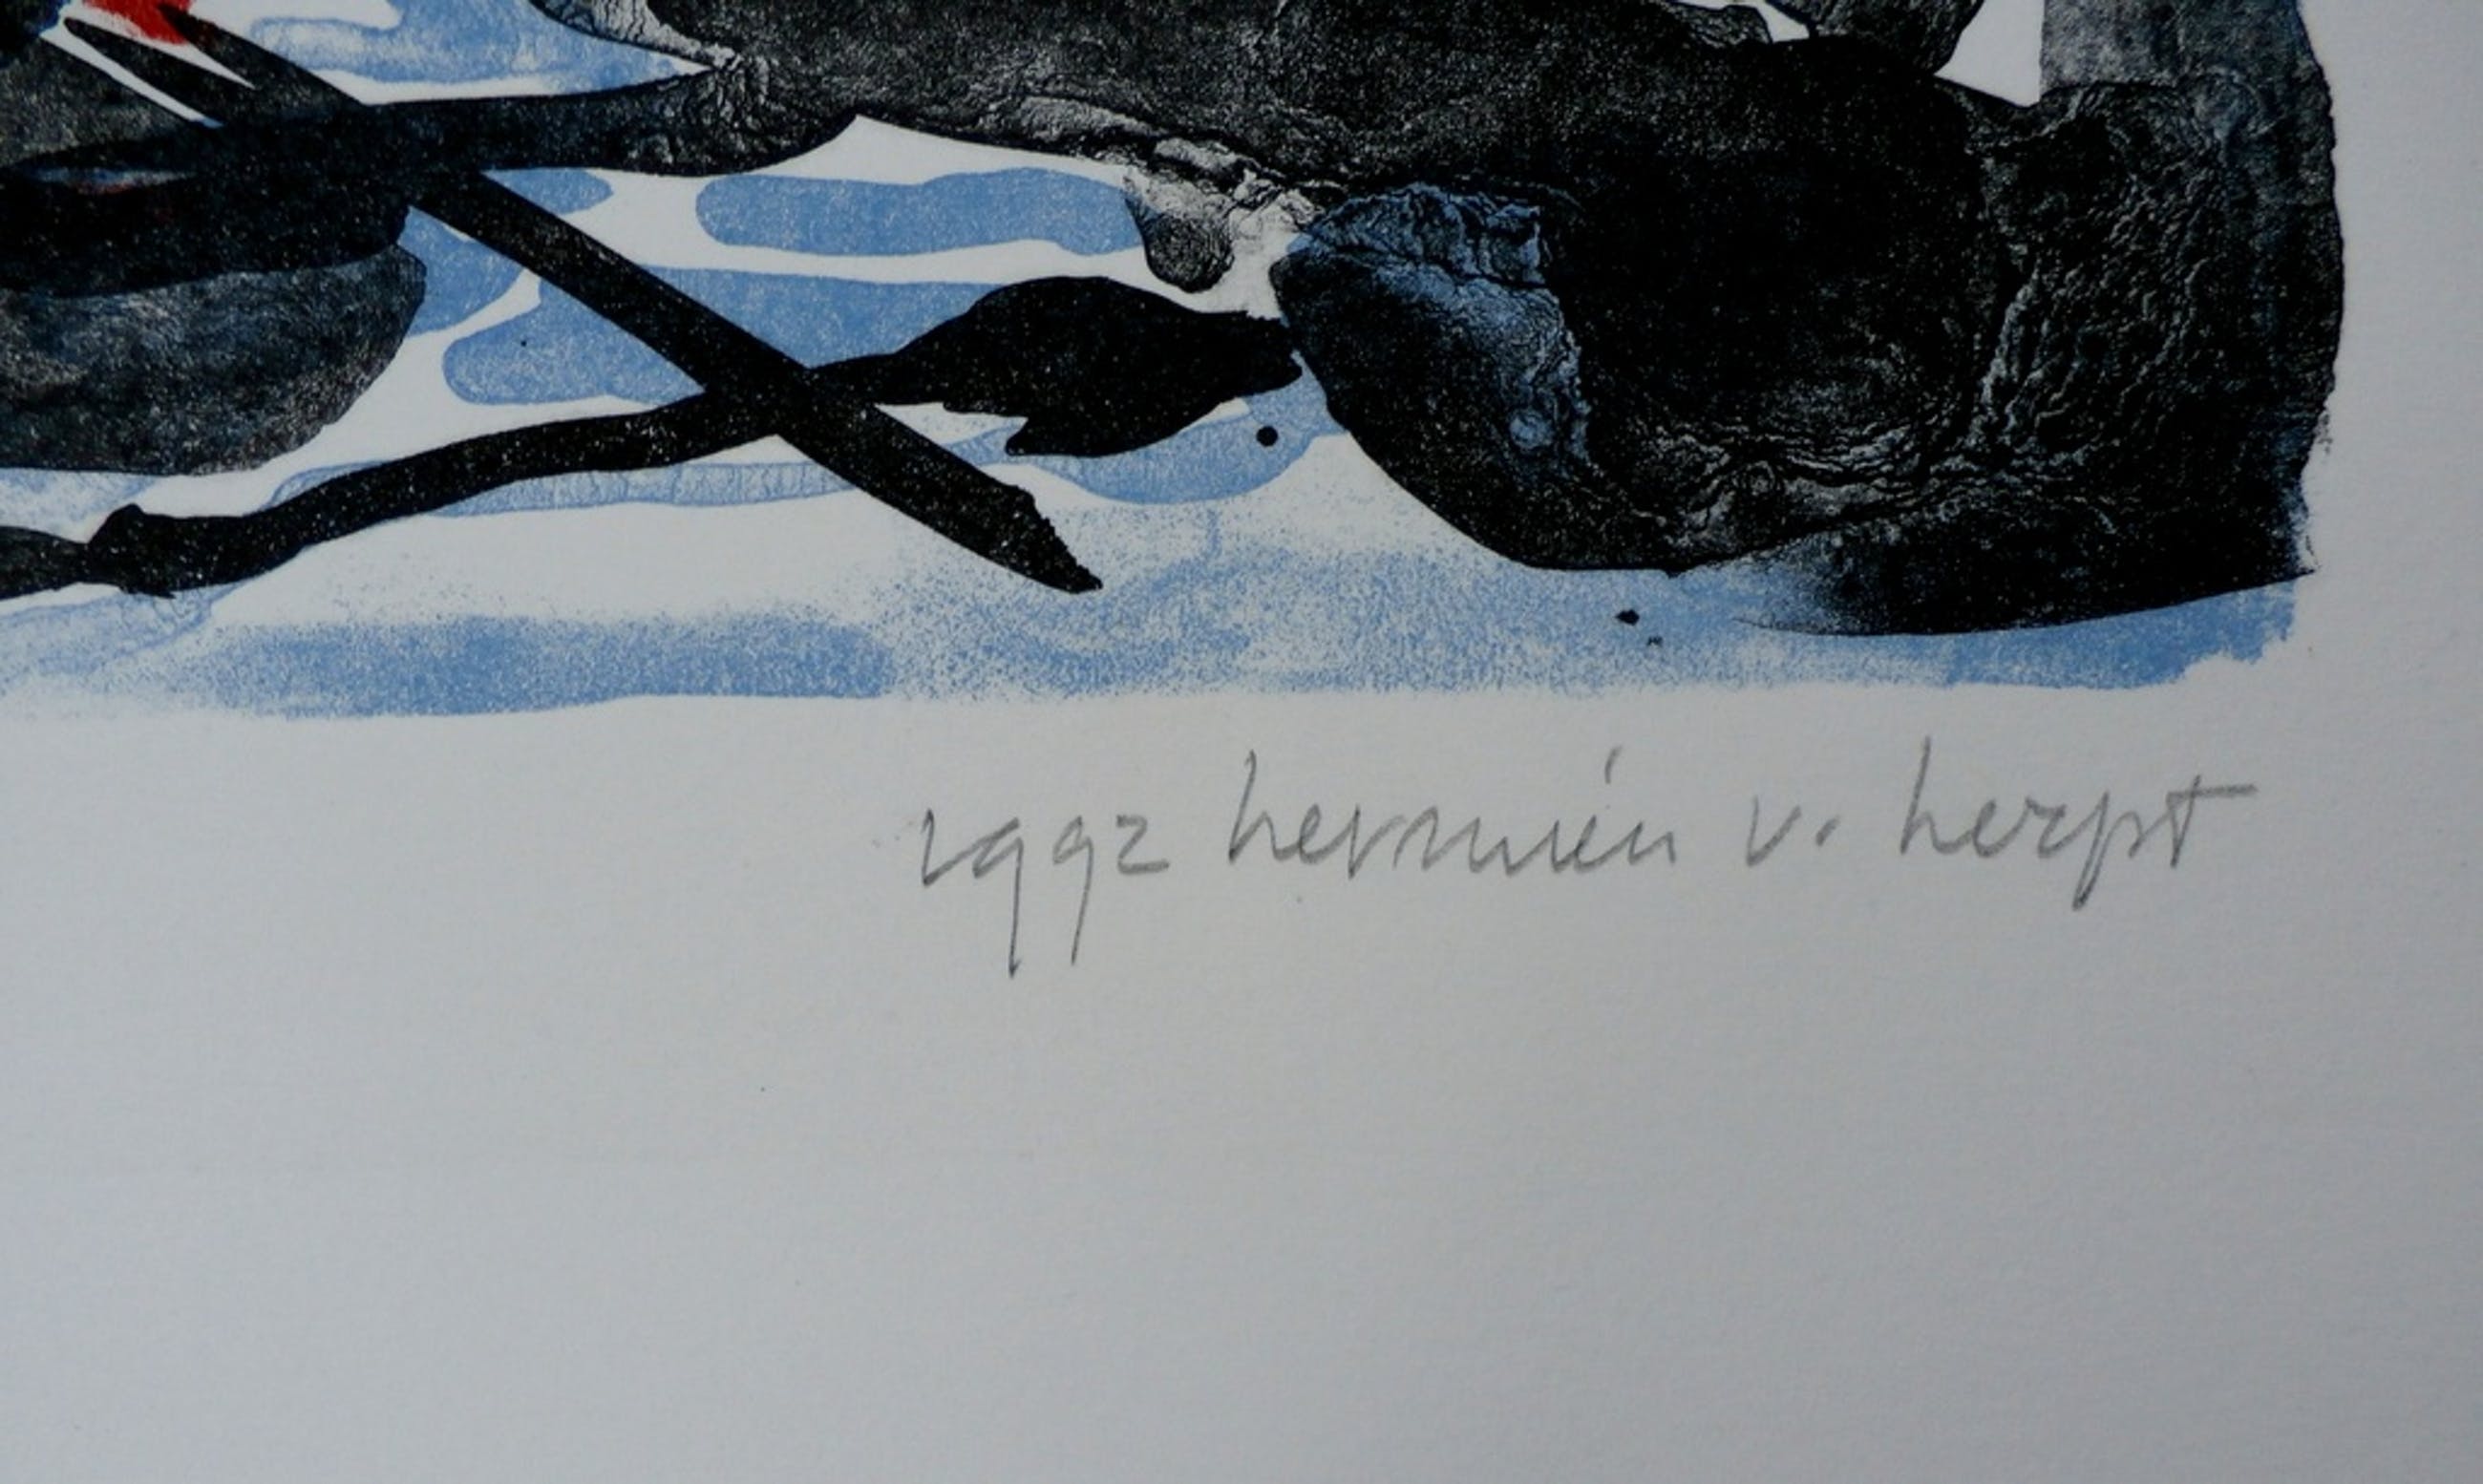 1992 hermien v. herpt